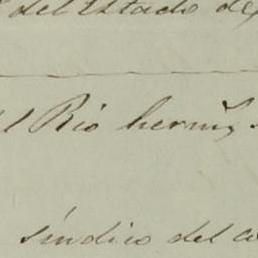 del Estado de
el Rio herm.s
síndico del co